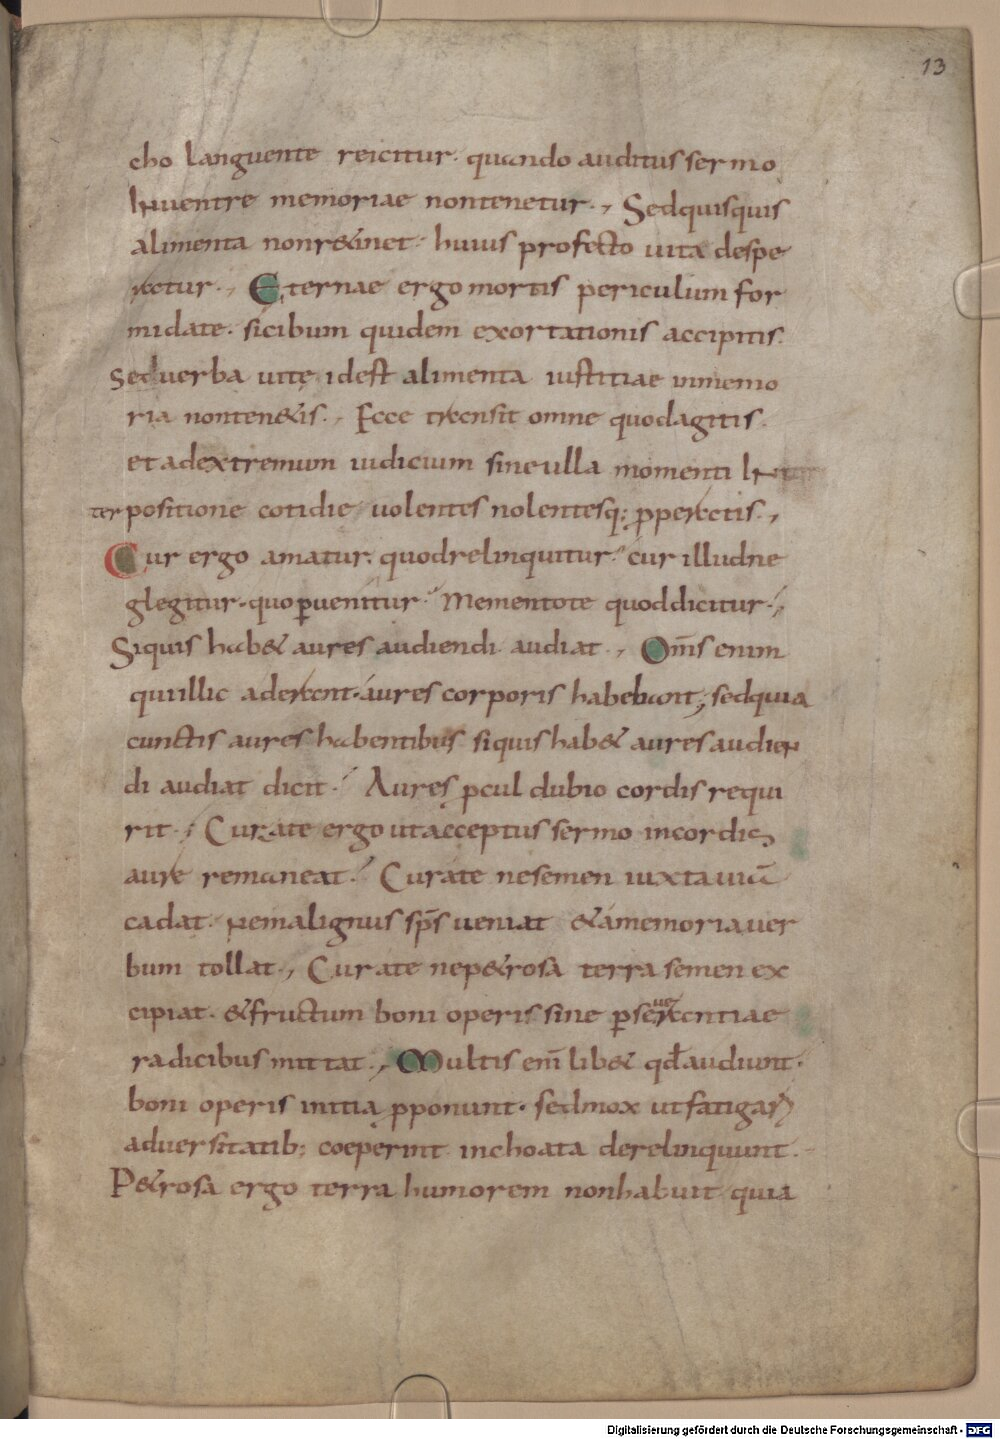 13
cho languente reicitur. quando auditus sermo
Inuentre memoriae nontenetur., Sedquisquis
alimenta nonr&inet. huius profecto uita despe
ratur., Eternae ergo mortis periculum for
midate. sicibum quidem exortationis accipitis.
Seduerba uitę idest alimenta iustitiae inmemo
ria nonten&is., Ecce transit omne quodagitis.
et adextremum iudicium sineulla momenti In
terpositione cotidie uolentes nolentesq; ꝓperatis.,
Cur ergo amatur. quodrelinquitur. cur illudne
glegitur. quoꝑuenitur. Mementote quoddicitur.,
Siquis hab& aures audiendi audiat., Om̄s enim
quiillic aderant. aures corporis habebant; sedquia
cunctis aures habentibus siquis hab& aures audien
di audiat dicit. Aures ꝓcul dubio cordis requi
rit.; Curate ergo utacceptus sermo incordis
aure remaneat. Curate nesemen iuxta uiā
cadat. nemalignus sp̄s ueniat &amemoria uer
bum tollat., Curate nep&rosa terra semen ex
cipiat. &fructum boni operis sine ꝑseuerantiae
radicibus mittat., Multis enī lib& qđ audiunt.
boni operis initia ꝓponunt. sedmox utfatigari
aduersitatib; coeperint inchoata derelinquunt.
P&rosa ergo terra humorem nonhabuit quia
Digitalisierung gefördert durch die Deutsche Forschungsgemeinschaft - DFG